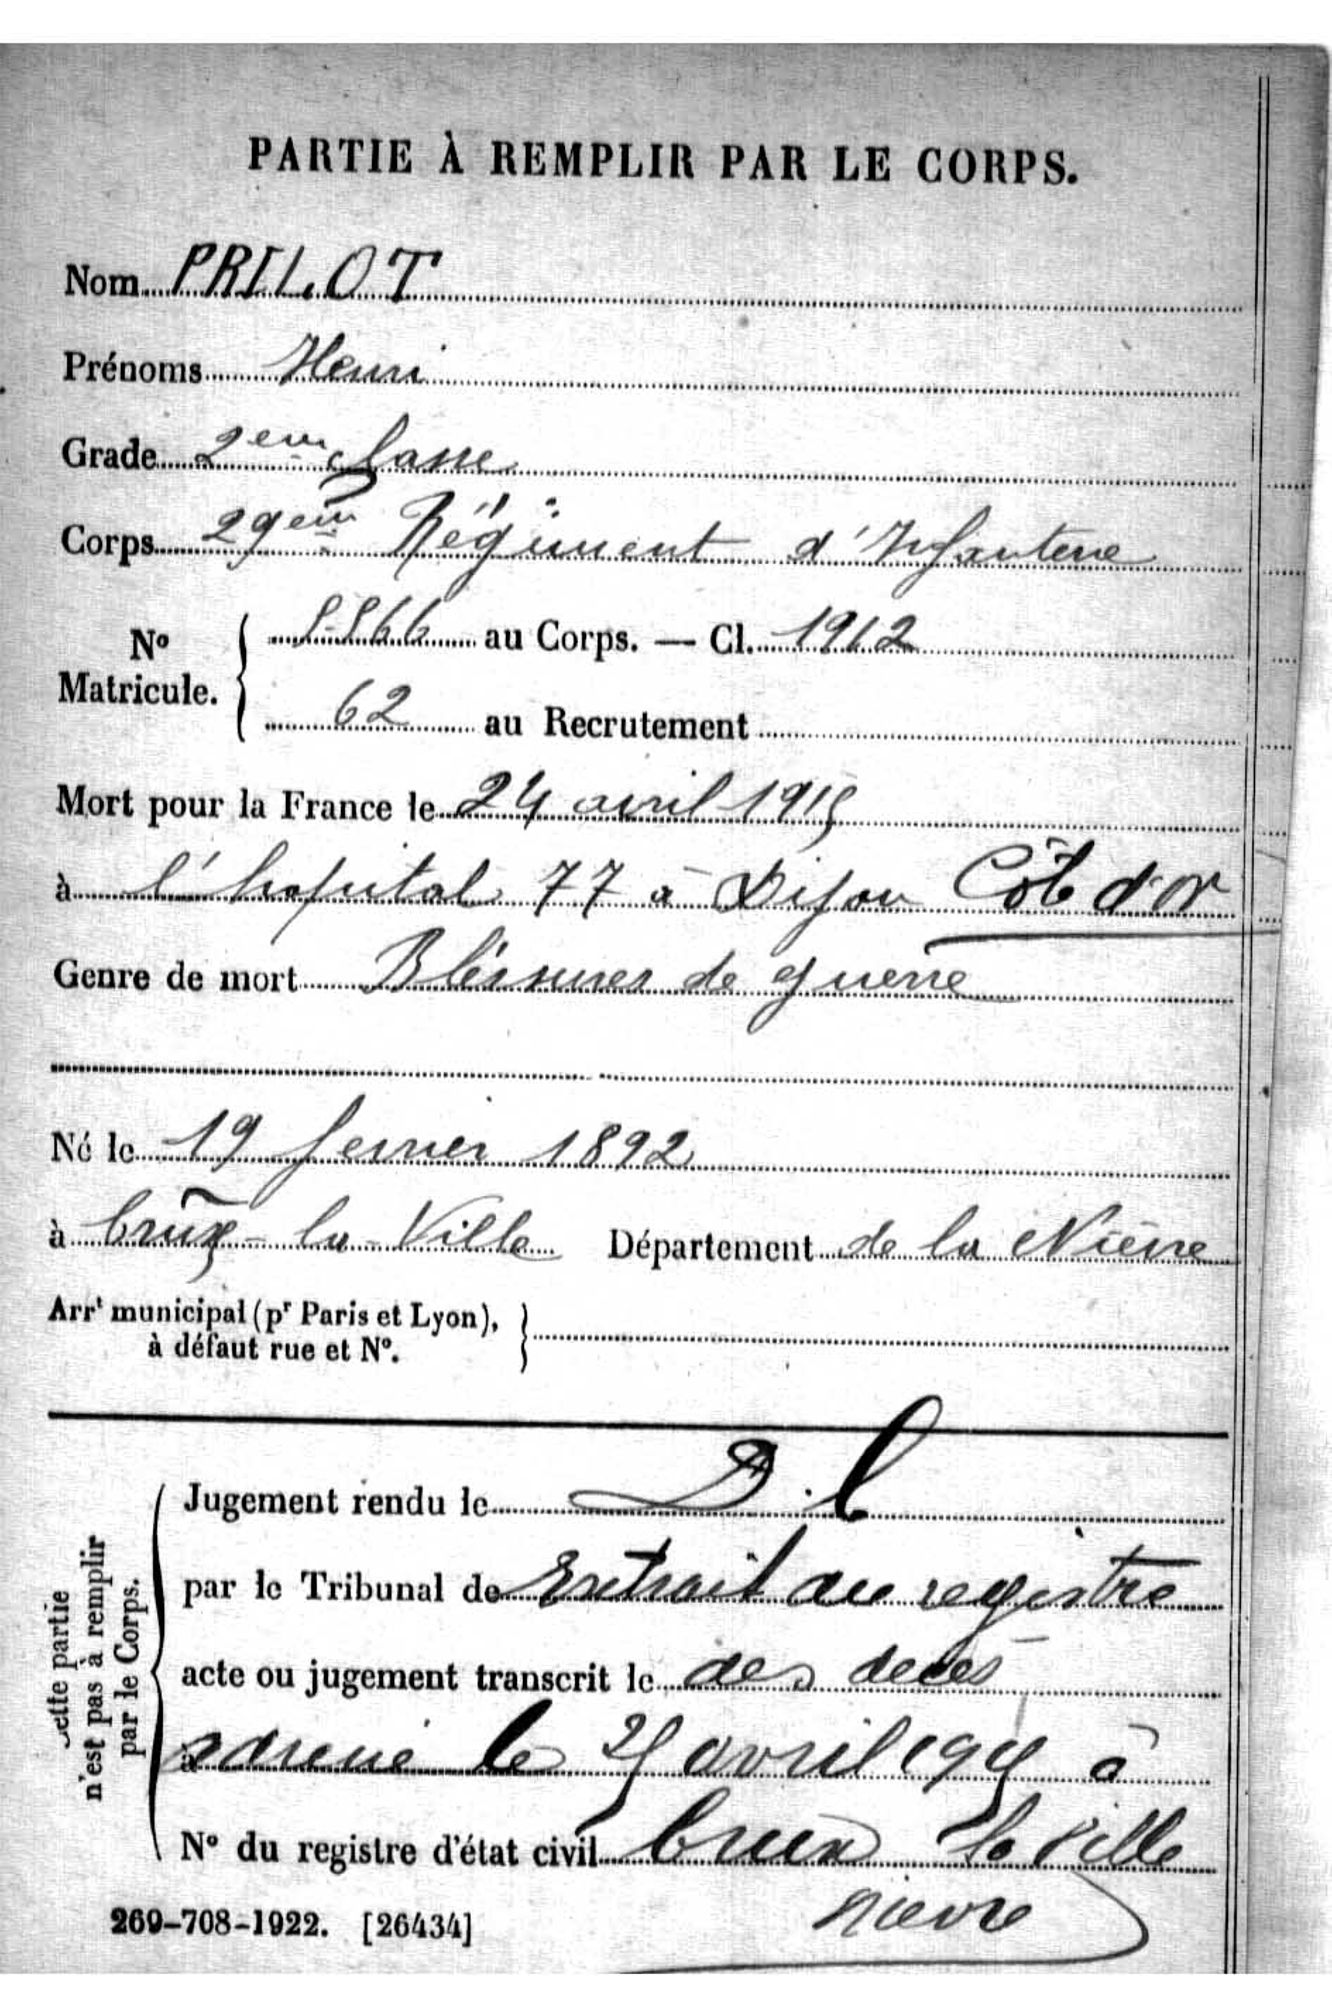 PARTIE À REMPLIR PAR LE CORPS.
Nom PRILOT
Prénoms Henri
Grade 2em classe
Corps 29em Régiment d'Infanterie
No Maticule. { au Corps. — Cl. 1912
62 au Recrutement
Mort pour la France le 24 avril 1915
à l'hopital 77 à Dijon Côte d'or
Genre de mort Bléssures de guerre
Né le 19 fevrier 1892
à Crüx-la-Ville Département de la Nièvre
Arrt municipal (pr Paris et Lyon),
à défaut rue et No.
Cette partie
n'est pas à remplir
par le Corps.
Jugement rendu le D.C
par le Tribunal de Extrait du registre
acte ou jugement transcrit le des décès
à adressé le avril 1915 à
No du registre d'état civil Crux la Ville
Nièvre
269-708-1922. [26434]